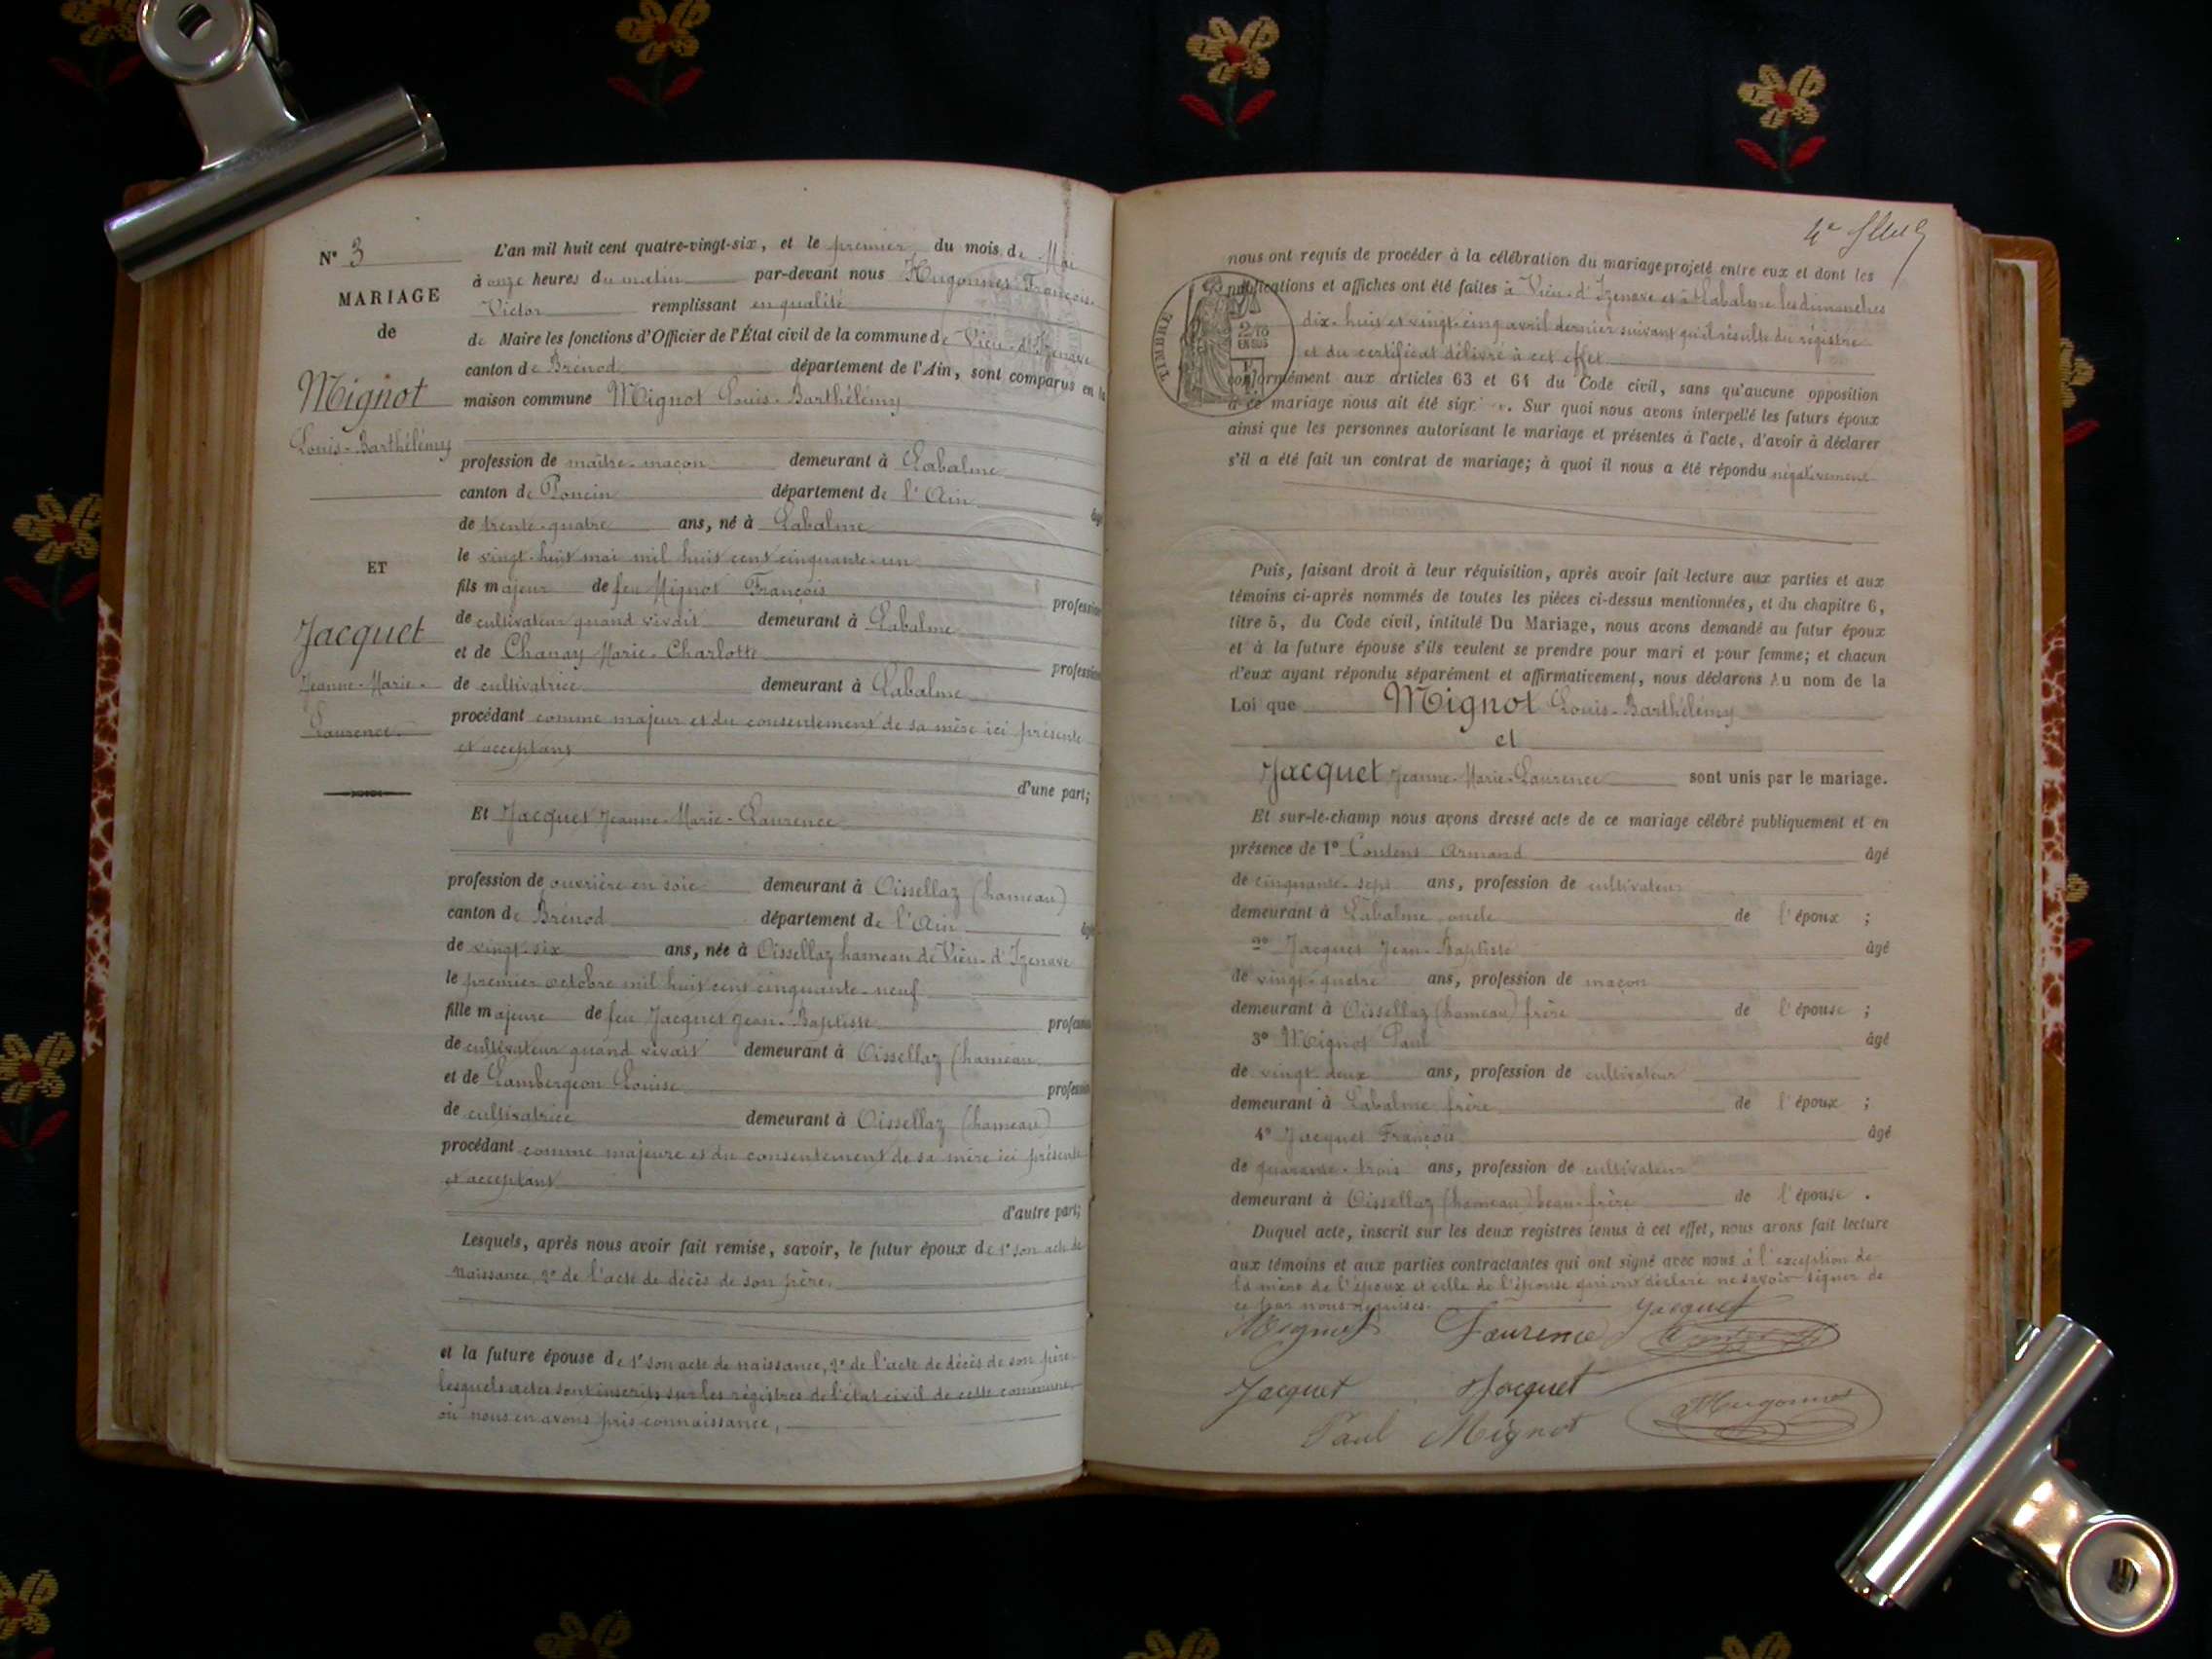 N° 3
MARIAGE
de
Mignot
Louis-Barthélémy
ET
Jacquet
Jeanne-Marie-
Laurence
L'an mil huit cent quatre-vingt-six, et le premier du mois de Mai
à onze heures du matin par-devant nous Hugonnet François-
Victor remplissant en qualité
de Maire les fonctions d'Officier de l'État civil de la commune de Vieu-d'Izenave
canton de Brénod département de l'Ain, sont comparus en la
maison commune Mignot Louis-Barthélémy
profession de maître-maçon demeurant à Labalme
canton de Poncin département de l'Ain âgé
de trente-quatre ans, né à Labalme
le vingt-huit mai mil huit cent cinquante-un
fils majeur de feu Mignot François profession
de cultivateur quand vivait demeurant à Labalme
et de Chanay Marie-Charlotte profession
de cultivatrice demeurant à Labalme
procédant comme majeur et du consentement de sa mère ici présente
et acceptant
d'une part;
Et Jacquet Jeanne-Marie-Laurence
profession de ouvrière en soie demeurant à Oissellaz (hameau)
canton de Brénod département de l'Ain âgé
de vingt-six ans, née à Oissellaz hameau de Vieu-d'Izenave
le premier octobre mil huit cent cinquante-neuf
fille majeure de feu Jacquet Jean-Baptiste profession
de cultivateur quand vivait demeurant à Oissellaz (hameau
et de Lambergeon Louise profession
de cultivatrice demeurant à Oissellaz (hameau)
procédant comme majeure et du consentement de sa mère ici présente
et acceptant
d'autre part;
Lesquels, après nous avoir fait remise, savoir, le futur époux de 1° son acte de
naissance, 2° de l'acte de décès de son père,
et la future épouse de 1° son acte de naissance, 2° de l'acte de décès de son père
lesquels actes sont inscrits sur les régistres de l'état civil de cette commune
où nous en avons pris connaissance,
nous ont requis de procéder à la célébration du mariage projeté entre eux et dont les
publications et affiches ont été faites à Vieu-d'Izenave et à Labalme les dimanches
dix-huit et vingt-cinq avril dernier suivant qu'il résulte du régistre
et du certificat délivré à cet effet
TIMBRE
conformément aux articles 63 et 64 du Code civil, sans qu'aucune opposition
à ce mariage nous ait été sig. Sur quoi nous avons interpellé les futurs époux
ainsi que les personnes autorisant le mariage et présentes à l'acte, d'avoir à déclarer
s'il a été fait un contrat de mariage; à quoi il nous a été répondu négativement
Puis, faisant droit à leur réquisition, après avoir fait lecture aux parties et aux
témoins ci-après nommés de toutes les pièces ci-dessus mentionnées, et du chapitre 6,
titre 5, du Code civil, intitulé Du Mariage, nous avons demandé au futur époux
et à la future épouse s'ils veulent se prendre pour mari et pour femme; et chacun
d'eux ayant répondu séparément et affirmativement, nous déclarons Au nom de la
Loi que Mignot Louis-Barthélémy
et
Jacquet Jeanne-Marie-Laurence sont unis par le mariage.
Et sur-le-champ nous avons dressé acte de ce mariage célébré publiquement et en
présence de 1° Coutens Armand âgé
de cinquante-sept ans, profession de cultivateur
demeurant à Labalme oncle de l'époux ;
2° Jacquet Jean-Baptiste âgé
de vingt-quatre ans, profession de maçon
demeurant à Oissellaz (hameau) frère de l'épouse ;
3° Mignot Paul âgé
de vingt-deux ans, profession de cultivateur
demeurant à Labalme frère de l'époux ;
4° Jacquet François âgé
de quarante-trois ans, profession de cultivateur
demeurant à Oissellaz (hameau) beau-frère de l'épouse .
Duquel acte, inscrit sur les deux registres tenus à cet effet, nous avons fait lecture
aux témoins et aux parties contractantes qui ont signé avec nous à l'exception de
la mère de l'époux et celle de l'épouse qui ont déclaré ne savoir signer de
ce par nous requises.
Mignot Laurence Jacquet
Jacquet Jacquet Hugonnet
Paul Mignot